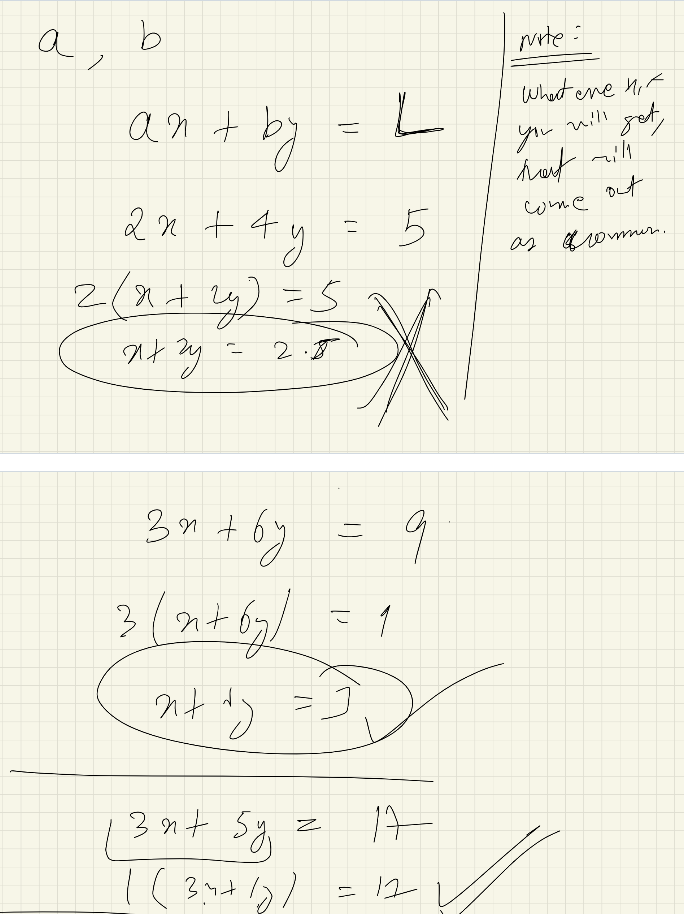 a, b
ax + by = L
2x + 4y = 5
2(x + 2y) = 5
x + 2y = 2.5
note:
What ever
you will get,
that will
come out
as common.
3x + 6y = 9
3(x + 6y) = 9
x + y = 3
3x + 5y = 17
1(3x + y) = 17